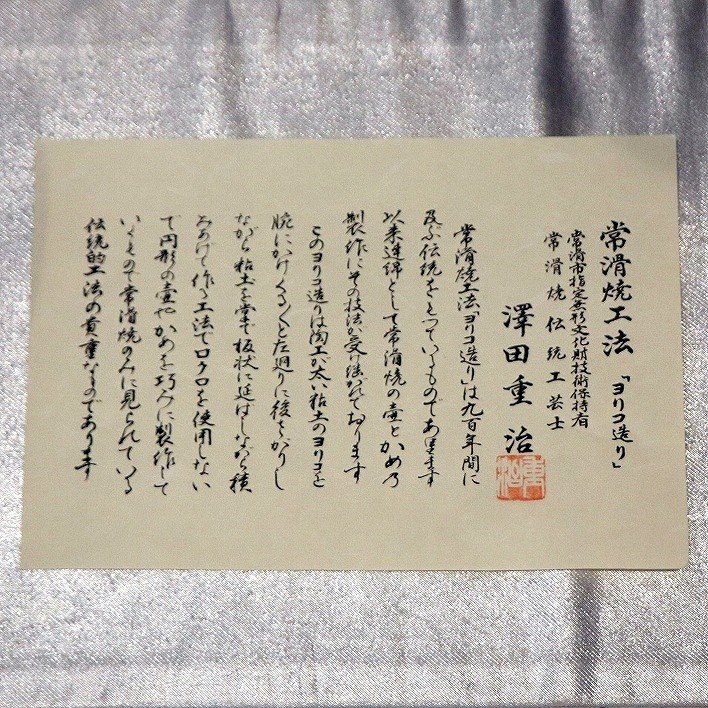 常滑焼工法「ヨリコ造り」
常滑市指定無形文化財技術保持者
常滑焼伝統工芸士
澤田重治
重治
常滑焼工法「ヨリコ造り」は九百年間に
及ぶ伝統をもっているものであります
以来連綿として常滑焼の壷とかめの
製作にその技法が受け継がれております
このヨリコ造りは陶工が太い粘土のヨリコを
腕にかけくるくと左廻りに後ずさりし
ながら粘土を掌で板状に延ばしながら積
みあげて作る工法でロクロを使用しない
で円形の壷やかめを巧みに製作して
いくもので常滑焼のみに見られている
伝統的工法の貴重なものであります